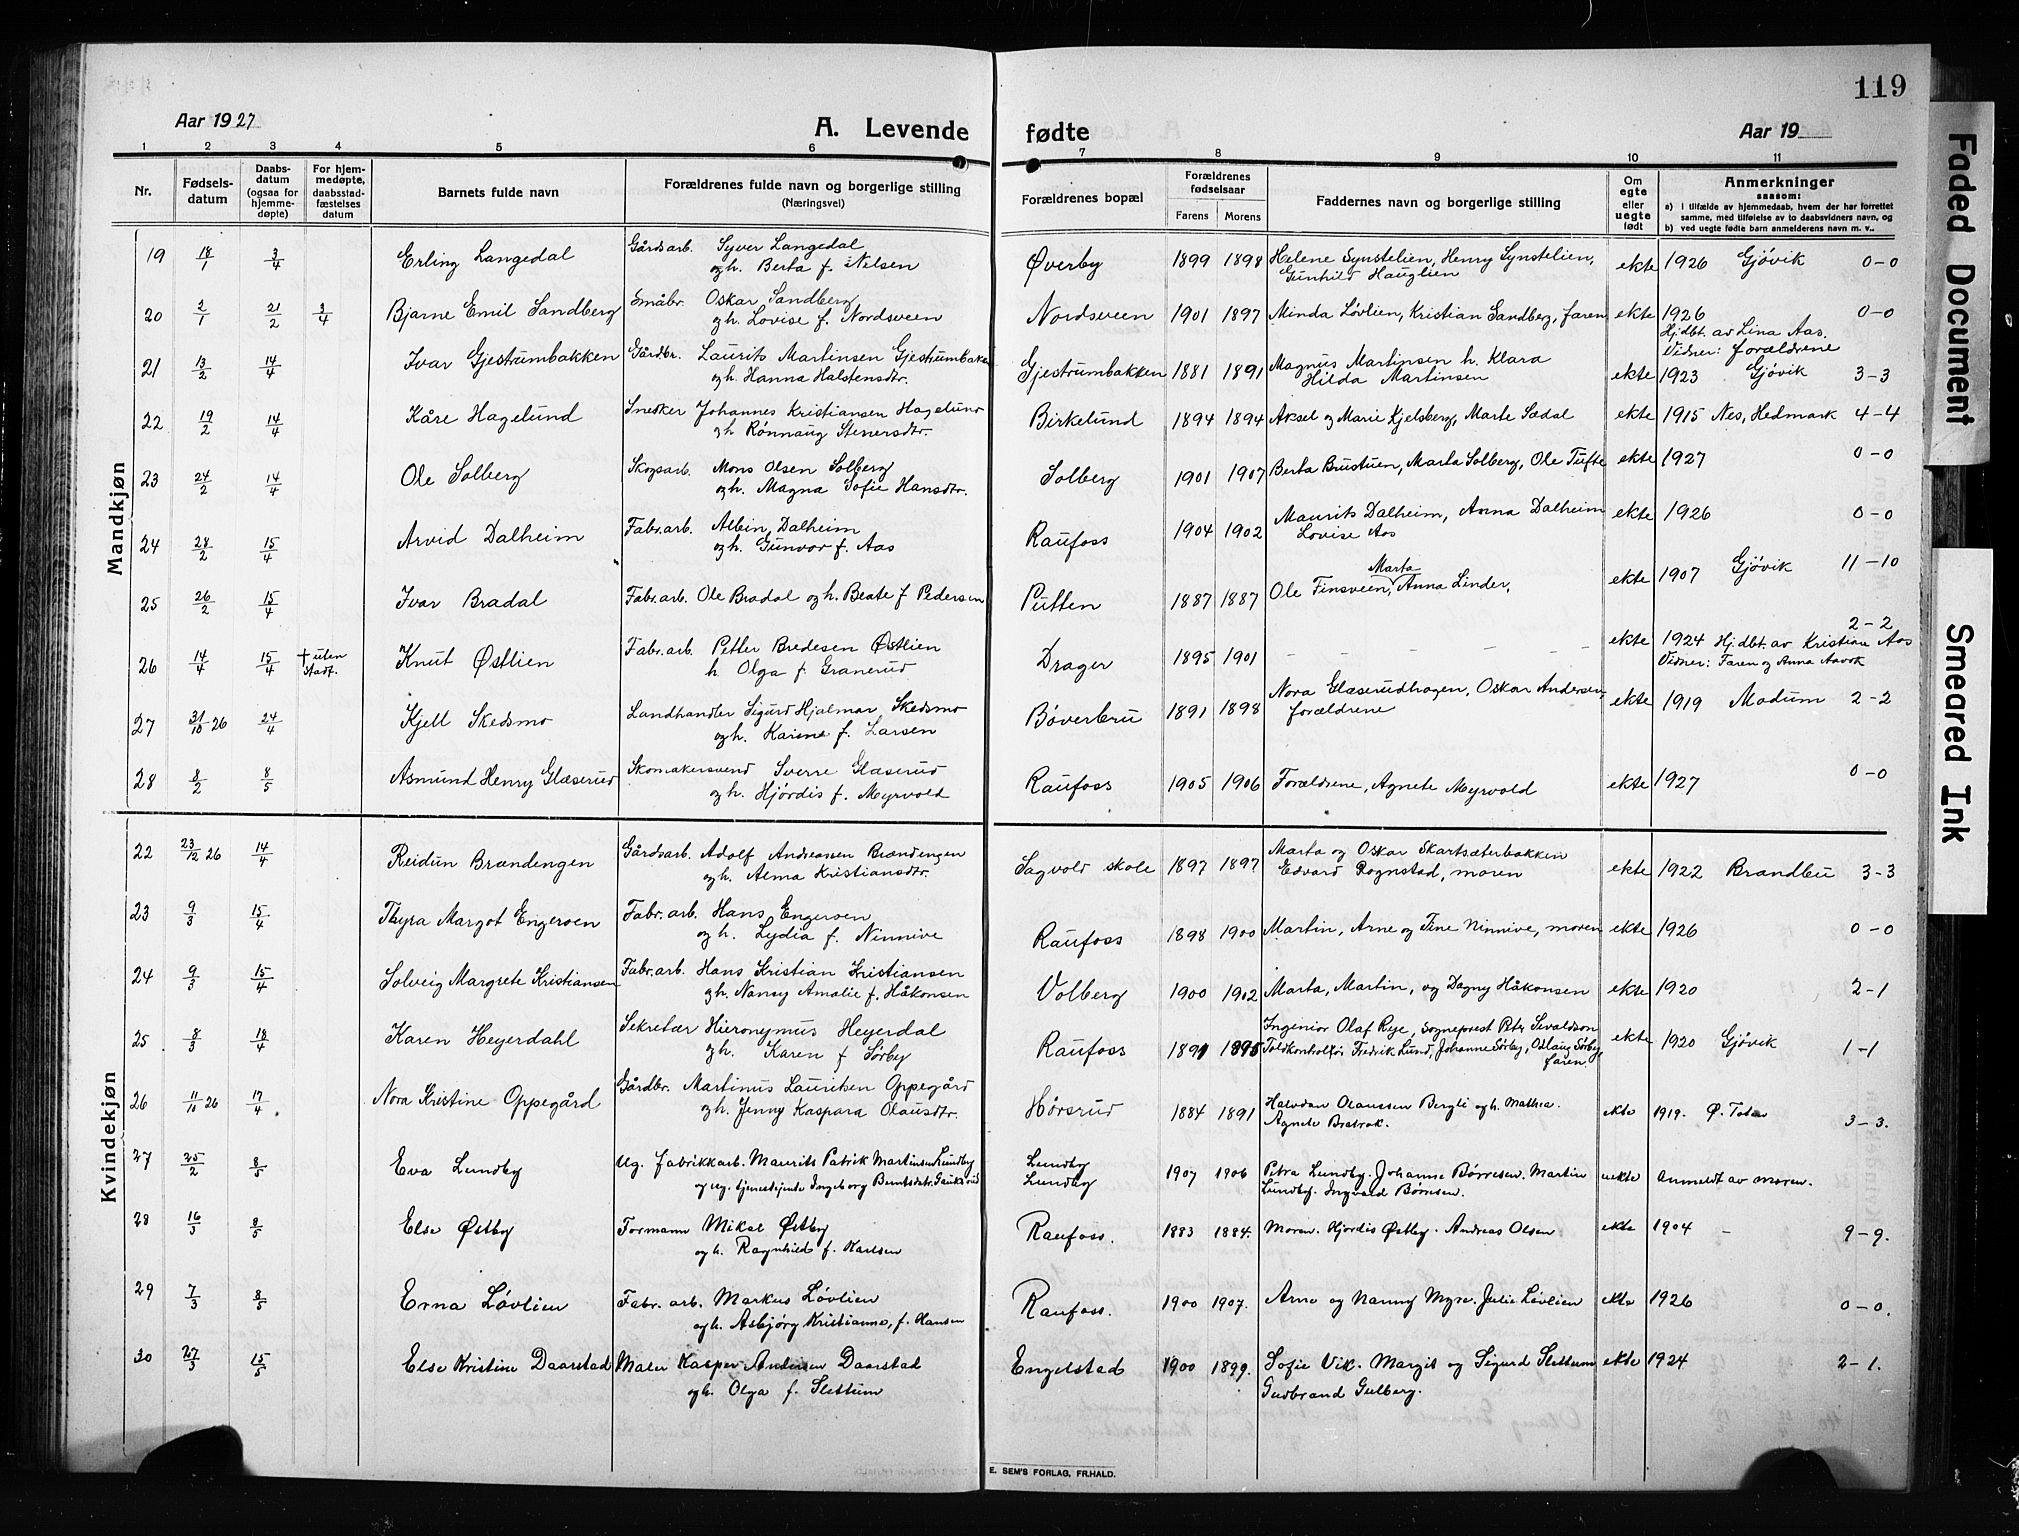 119
Aar 1927
A. Levende fødte
Aar 19
1 2 3 4 5 6 7 8 9 10 11
Nr.
Fødsels-
datum
Daabs-
datum
(ogsaa for
hjemme-
døpte)
For hjem-
medøpte,
daabsstad-
fæstelses
datum
Barnets fulde navn
Forældrenes fulde navn og borgerlige stilling
(Næringsvei)
Forældrenes bopæl
Forældrenes
fødselsaar
Farens Morens
Faddernes navn og borgerlige stilling
Om
egte
eller
uegte
født
Anmerkninger
saasom:
a) I tilfælde av hjemmedaab, hvem der har forrettet
samme, med tilføielse av to daabsvidners navn, og
b) ved uegte fødte barn anmelderens navn m. v..
Mandkjøn
19 18/1 3/4 Erling Langedal Gårdsarb. Syver Langedal
og h. Berta f. Nilsen
Øverby 1899 1898 Helene Synstelien, Henry Synstelien,
Gunhild Hauglien
ekte 1926 Gjøvik 0-0
20 2/1 21/2 3/4 Bjarne Emil Sandberg Småbr. Oskar Sandberg
og h. Lovise f. Nordsveen
Nordsveen 1901 1897 Minda Løvlien, Kristian Sandberg, faren ekte 1926 0-0
Hjdbt. av Lina Aas.
Vidner: forældrene
21 13/2 14/4 Ivar Gjestrumbakken Gårdbr. Laurits Martinsen Gjestrumbakken
og h. Hanna Halstensdtr.
Gjestrumbakken 1881 1891 Magnus Martinsen h. Klara
Hilda Martinsen
ekte 1923 Gjøvik 3-3
22 19/2 14/4 Kåre Hagelund Snedker Johannes Kristiansen Hagelund
og h Rønnaug Stenersdtr.
Birkelund 1894 1894 Aksel og Marie Kjelsberg, Marte Sædal ekte 1915 Nes, Hedmark 4-4
23 24/2 14/4 Ole Solberg Skogsarb. Mons Olsen Solberg
og h. Magna Sofie Hansdtr.
Solberg 1901 1907 Berta Brustuen, Marta Solberg, Ole Tufte ekte 1927 0-0
24 28/2 15/4 Arvid Dalheim Fabr.arb. Albin Dalheim
og h. Gunvor f. Aas
Raufoss 1904 1902 Maurits Dalheim, Anna Dalheim
Lovise Aas
ekte 1926 0-0
25 26/2 15/4 Ivar Bradal Fabr.arb. Ole Bradal og h. Beate f Pedersen
Putten 1887 1887 Ole Finsveen, Marta Anna Linder,
ekte 1907 Gjøvik 11-10
26 14/4 15/4 † uten
Stadf.
Knut Østlien Fabr.arb. Petter Bredesen Østlien
h Olga f. Granerud
Drager 1895 1901 - - - - - - ekte 1924 Hj.dbt. av Kristian Aas 2-2
Vidner: Faren og Anna Aavok
27 31/10 26 24/4 Kjell Skedsmo Landhandler Sigurd Hjalmar Skedsmo
og h. Karine f. Larsen
Bøverbru 1891 1898 Nora Glæserudhagen, Oskar Andersen,
forældrene
ekte 1919 Modum 2-2
28 8/2 8/5 Asmund Henry Glæserud Skomakersvend Sverre Glæserud
og h. Hjørdis f. Myrvold
Raufoss 1905 1906 Forældrene, Agnete Myrvold ekte 1927 0-0
Kvindekjøn
22 23/12 26 14/4 Reidun Brændengen Gårdsarb. Adolf Andreassen Brændengen
og h. Alma Kristiansdtr.
Sagvold skole 1897 1897 Marta og Oskar Skartsæterbakken
Edvard Rognstad, moren
ekte 1922 Brandbu 3-3
23 9/3 15/4 Thyra Margot Engeroen Fabr.arb. Hans Engeroen
og h. Lydia f. Ninnive
Raufoss 1898 1900 Martin, Arne og Tine Ninnive, moren ekte 1926 0-0
24 9/3 15/4 Solveig Margrete Kristiansen Fabr.arb. Hans Kristian Kristiansen
og h. Nancy Amalie f. Håkonsen
Volberg 1900 1902 Marta, Martin, og Dagny Håkonsen ekte 1920 2-1
25 8/3 18/4 Karen Heyerdahl Sekretær Hieronymus Heyerdal
og h. Karen f Sørby
Raufoss 1891 1895 Ingeniør Olaf Rye, Sogneprest Peter Sevaldson
Toldkontrollør Fredrik Lund, Johanne Sørby, Odlaug Sørby
faren
ekte 1920 Gjøvik 1-1
26 11/10 26 17/4 Nora Kristine Oppegård Gårdbr. Martinus Lauritsen Oppegård
og h. Jenny Kaspara Olausdtr.
Hørsrud 1884 1891 Halvdan Olaussen Bergli og h. Mathea.
Agnete Bratrok.
ekte 1919. Ø. Toten 3-3.
27 25/2 8/5 Eva Lundby Ug. fabrikkarb. Maurits Patrik Martinsen Lundby
og ug. tjenestejente Ingeborg Berntsdtr. Gaukerud
Lundby
Lundby
1907 1906 Petra Lundby. Johanne Børresen. Martin
Lundby. Ingvald Børresen.
uekte Anmeldt av moren.
28 16/3 8/5 Else Østby Formann Mikal Østby
og h. Ragnhild f. Karlsen
Raufoss. 1883 1884. Moren. Hjordis Østby. Andreas Olsen ekte 1904 - 9-9.
29 7/3 8/5 Erna Løvlien Fabr. arb. Markus Løvlien
og h. Asbjørg Kristianne, f. Hansen
Raufoss. 1900 1907. Arne og Nanny Myre. Julie Løvlien ekte 1926 0-0.
30 27/3 15/5 Else Kristine Daarstad Maler Kasper Andersen Daarstad
og h. Olga f. Slettum
Engelstad 1900 1899. Sofie Vik. Margit og Sigurd Slettum
Gudbrand Gulberg.
ekte 1924 2-1.
E. SEM'S FORLAG, FR.HALD.
Faded Document
Smeared Ink